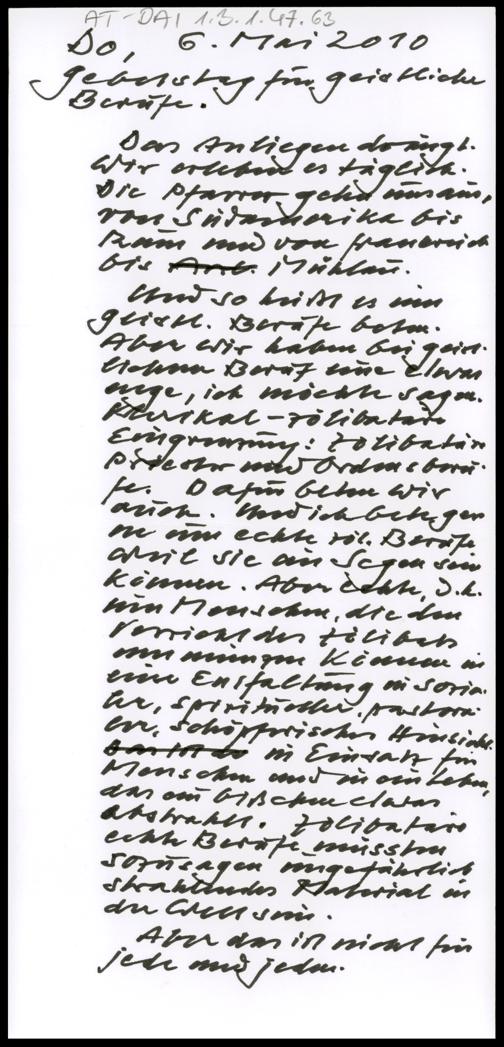 AT-DAI 1.3.1.47.63
Do, 6. Mai 2010
Gebetstag für geistliche
Berufe.
Das Anliegen drängt.
Wir erleben es täglich.
Die Pfarrer gehn uns aus,
von Südamerika bis
Rum und von Frankreich
bis Mühlau.
Und so heißt es um
geistl. Berufe beten.
Aber wir haben bei geist-
lichem Beruf eine etwas
enge, ich möchte sagen
klerikal-zölibatäre
Eingrenzung: zölibatäre
Priester und Ordensberu-
fe. Dafür beten wir
auch. Und ich bete gern
um echte zöl. Berufe
weil sie ein Segen sein
können. Aber echte, d.h.
um Menschen, die den
Verzicht des Zölibats
ummünzen können in
eine Entfaltung in sozia-
ler, spiritueller, pastora-
ler, schöpferischer Hinsicht.
in Einsatz für
Menschen und in ein Leben,
das ein bißchen etwas
abstrahlt. Zölibatäre
echte Berufe müssten
sozusagen ungefährlich
strahlendes Material in
der Welt sein.
Aber das ist nicht für
jede und jeden.